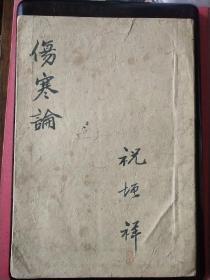 傷寒論
祝垣祥